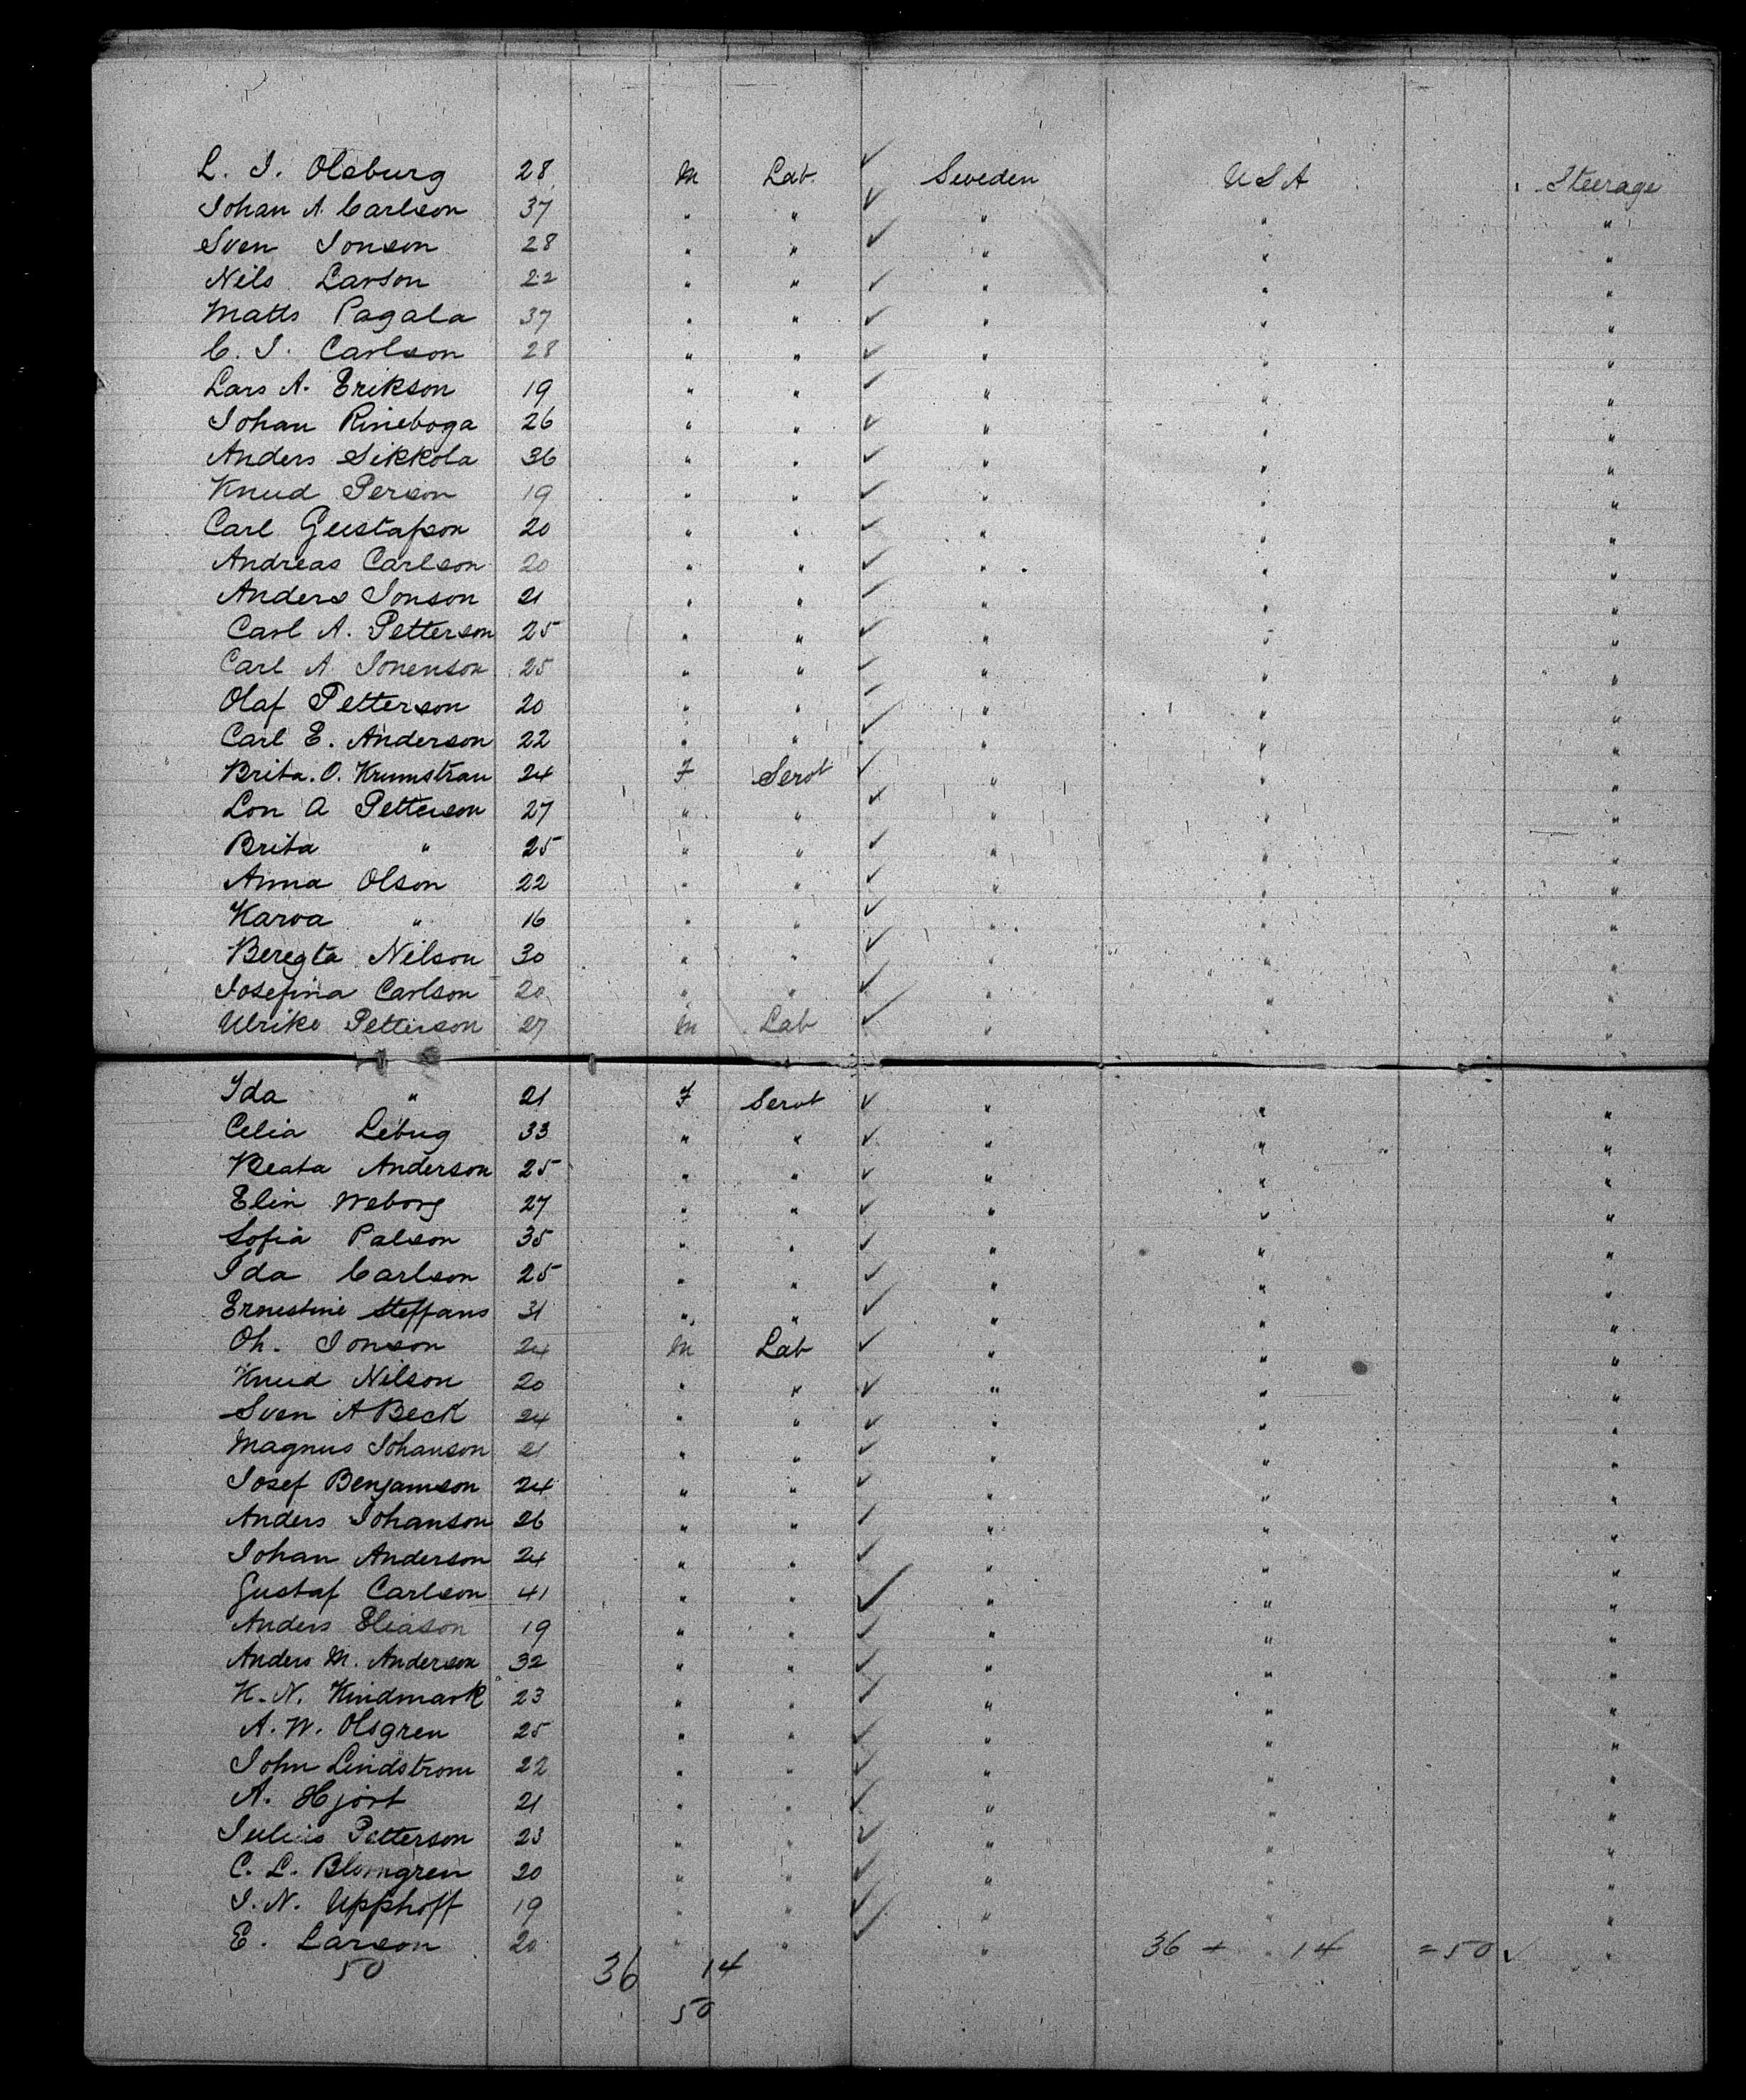 L. J. Olsburg 28 M Lab. Sweden USA Steerage
Johan A. Carlson 37 " " " " "
Sven Jonson 28 " " " " "
Nils Larson 22 " " " " "
Matts Pagala 37 " " " " "
C. J. Carlson 28 " " " " "
Lars A. Erikson 19 " " " " "
Johan Rineboga 26 " " " " "
Anders Sikkola 36 " " " " "
Knud Person 19 " " " " "
Carl Gustafson 20 " " " " "
Andreas Carlson 20 " " " " "
Anders Jonson 21 " " " " "
Carl A. Petterson 25 " " " " "
Carl A. Jonenson 25 " " " " "
Olaf Petterson 20 " " " " "
Carl E. Anderson 22 " " " " "
Brita. O. Krumstrau 24 F Servt " " "
Lon A Petterson 27 " " " " "
Brita " 25 " " " " "
Anna Olson 22 " " " " "
Karva " 16 " " " " "
Beregta Nelson 30 " " " " "
Josefina Carlson 20 " " " " "
Ulrike Petterson 27 M Lab " " "
Ida " 21 F Servt " " "
Celia Lebug 33 " " " " "
Beata Anderson 25 " " " " "
Elin Weborg 27 " " " " "
Sofia Palson 35 " " " " "
Ida Carlson 25 " " " " "
Ernestine Steffans 31 " " " " "
Oh. Jonson 24 M Lab " " "
Knud Nilson 20 " " " " "
Sven A Beck 24 " " " " "
Magnus Johanson 21 " " " " "
Josef Benjamson 24 " " " " "
Anders Johanson 26 " " " " "
Johan Anderson 24 " " " " "
Gustaf Carlson 41 " " " " "
Anders Eliason 19 " " " " "
Anders M. Anderson 32 " " " " "
K. N. Kindmark 23 " " " " "
A. W. Olsgren 25 " " " " "
John Lindstrom 22 " " " " "
A. Hjort 21 " " " " "
Julius Petterson 23 " " " " "
C. L. Blomgren 20 " " " " "
J. N. Upphoff 19 " " " " "
E. Larson 20 " " " 36 + 14 = 50 ✓ "
50 36 14
50